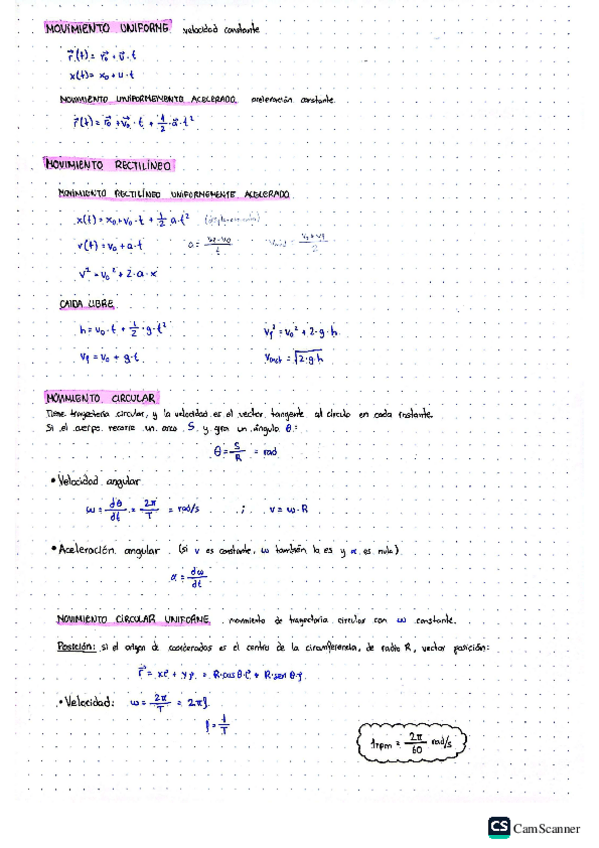 MOVIMIENTO UNIFORME velocidad constante
r⃗(t) = r⃗₀ + v⃗ · t
x(t) = x₀ + v · t
MOVIMIENTO UNIFORMEMENTE ACELERADO aceleración constante
r⃗(t) = r⃗₀ + v⃗₀ · t + 1/2 · a⃗ · t²
MOVIMIENTO RECTILÍNEO
MOVIMIENTO RECTILÍNEO UNIFORMEMENTE ACELERADO
x(t) = x₀ + v₀ · t + 1/2 a · t²
v(t) = v₀ + a · t
v² = v₀² + 2 · a · x
CAIDA LIBRE
h = v₀ · t + 1/2 · g · t² v_f² = v₀² + 2 · g · h
v_f = v₀ + g · t = √2 · g · h
MOVIMIENTO CIRCULAR
Tiene trayectoria circular, y la velocidad es el vector tangente al círculo en cada instante.
Si el cuerpo recorre un arco S y gira un ángulo θ:
θ = S/R = rad
• Velocidad angular
ω = dθ/dt = 2π/T = rad/s ; v = ω · R
• Aceleración angular (si v es constante, ω también lo es y α es nula)
α = dω/dt
MOVIMIENTO CIRCULAR UNIFORME movimiento de trayectoria circular con ω constante.
Posición: si el origen de coordenadas es el centro de la circunferencia, de radio R, vector posición:
r⃗ = xi⃗ + yj = R·cos θ·i⃗ + R·sen θ·j
• Velocidad: ω = 2π/T = 2πf
f = 1/T
1rpm = 2π/60 rad/s
CS CamScanner